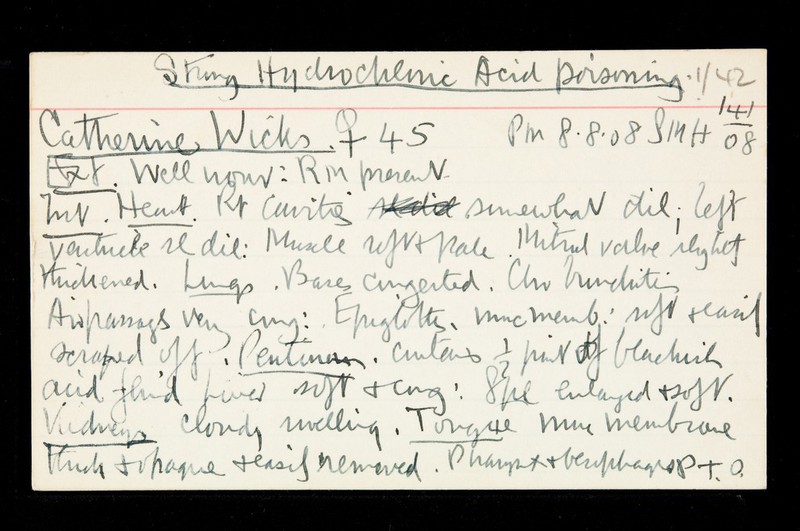 Strong Hydrochloric Acid Poisoning. 1/42
Catherine Wicks. ♀ 45 Pm 8.8.08 SMH 141/08
Ext. Well nour: Rm present
Int. Heart. Rt cavities somewhat dil; left
ventricle sl dil: Muscle soft & pale. Mitral valve slightly
thickened. Lungs. Bases congested. Chr bronchitis
Air passages very cong:. Epiglottis. muc memb: soft & easily
scraped off. contains ½ pint of blackish
acid fluid Liver soft & cong: Spl enlarged & soft.
Kidneys cloudy swelling. Tongue muc membrane
thick & opaque & easily removed. Pharynx & oesophagus P.T.O.